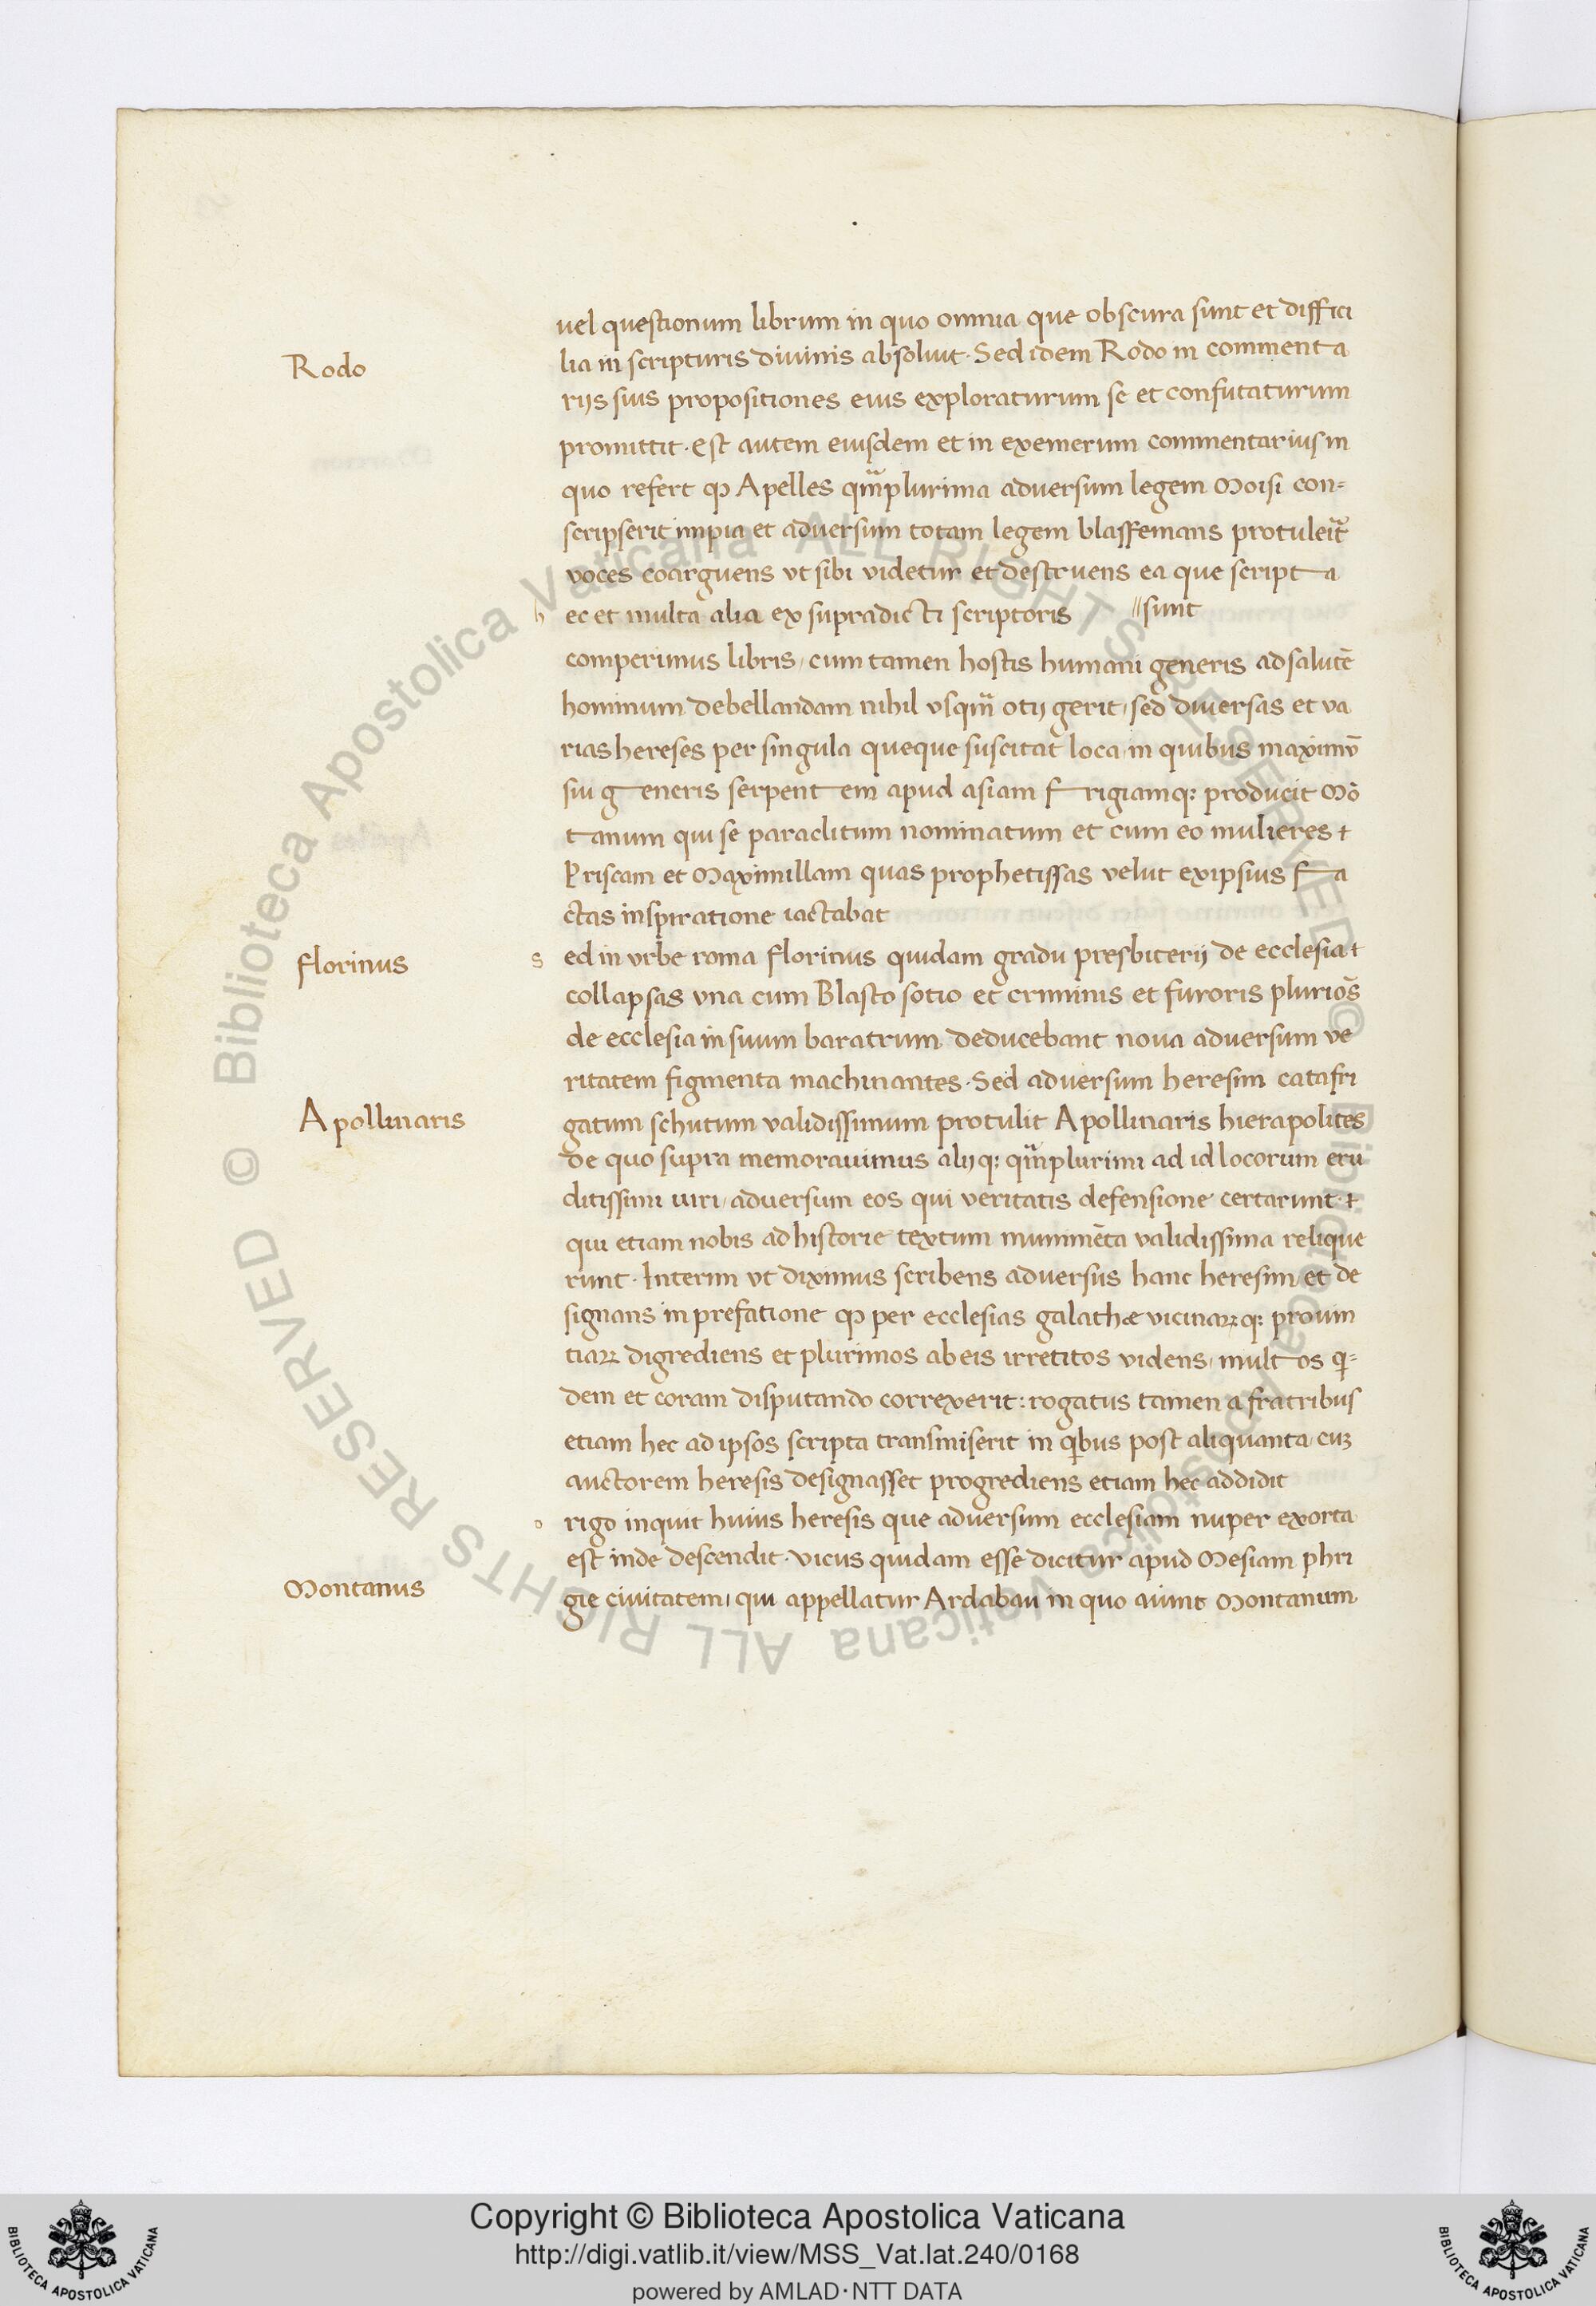 uel questionum librum in quo omnia que obscura sunt et diffici
Rodo
lia in scripturis diuinis absoluit. Sed idem Rodo in commenta
rijs suis propositiones eius exploraturum se et confutaturum
promittit. Est autem eiusdem et in exemerum commentarius in
quo refert ꝙ Apelles qm̃plurima aduersum legem Moisi con-
scripserit impia et aduersum totam legem blasfemans protuleit̃
voces coarguens vt sibi videtur et destruens ea que scripta
h ec et multa alia ex supradicti scriptoris //sunt
comperimus libris, cum tamen hostis humani generis ad salutẽ
hominum debellandam nihil vsqm̃ otij gerit, sed diuersas et va
rias hereses per singula queque suscitat loca in quibus maximũ
sui generis serpentem apud asiam frigiamqꝫ producit Mõ
tanum qui se paraclitum nominatum et cum eo mulieres +
Priscam et Maximillam quas prophetissas velut ex ipsius fa
ctas inspiratione iactabat
florinus
s ed in vrbe roma florinus quidam gradu presbiterij de ecclesia +
collapsas vna cum Blasto sotio et criminis et furoris plurioš
de ecclesia in suum baratrum deducebant noua aduersum ve
ritatem figmenta machinantes. Sed aduersum heresim catafri
Apollinaris
gatum schutum validissimum protulit Apollinaris hierapolites
de quo supra memorauimus alijqꝫ qm̃plurimi ad id locorum eru
ditissimi uiri, aduersum eos qui veritatis defensione certarunt. +
qui etiam nobis ad historie textum munimẽta validissima relique
runt. Interim vt diximus scribens aduersus hanc heresim, et de
signans in prefatione ꝙ per ecclesias galathæ vicinaꝝqꝫ prouin
tiaꝝ digrediens et plurimos ab eis irretitos videns, multos q̃-
dem et coram disputando correxerit: rogatus tamen a fratribus
etiam hec ad ipsos scripta transmiserit in q̃bus post aliquanta, cuꝫ
auctorem heresis designasset progrediens etiam hec addidit
o rigo inquit huius heresis que aduersum ecclesiam nuper exorta
est inde descendit. vicus quidam esse dicitur apud Mesiam phri
Montanus
gie ciuitatem, qui appellatur Ardabau in quo aiunt Montanum
© Biblioteca Apostolica Vaticana ALL RIGHTS RESERVED
© Biblioteca Apostolica Vaticana ALL RIGHTS RESERVED
Copyright © Biblioteca Apostolica Vaticana
http://digi.vatlib.it/view/MSS_Vat.lat.240/0168
powered by AMLAD·NTT DATA
BIBLIOTECA APOSTOLICA VATICANA
BIBLIOTECA APOSTOLICA VATICANA